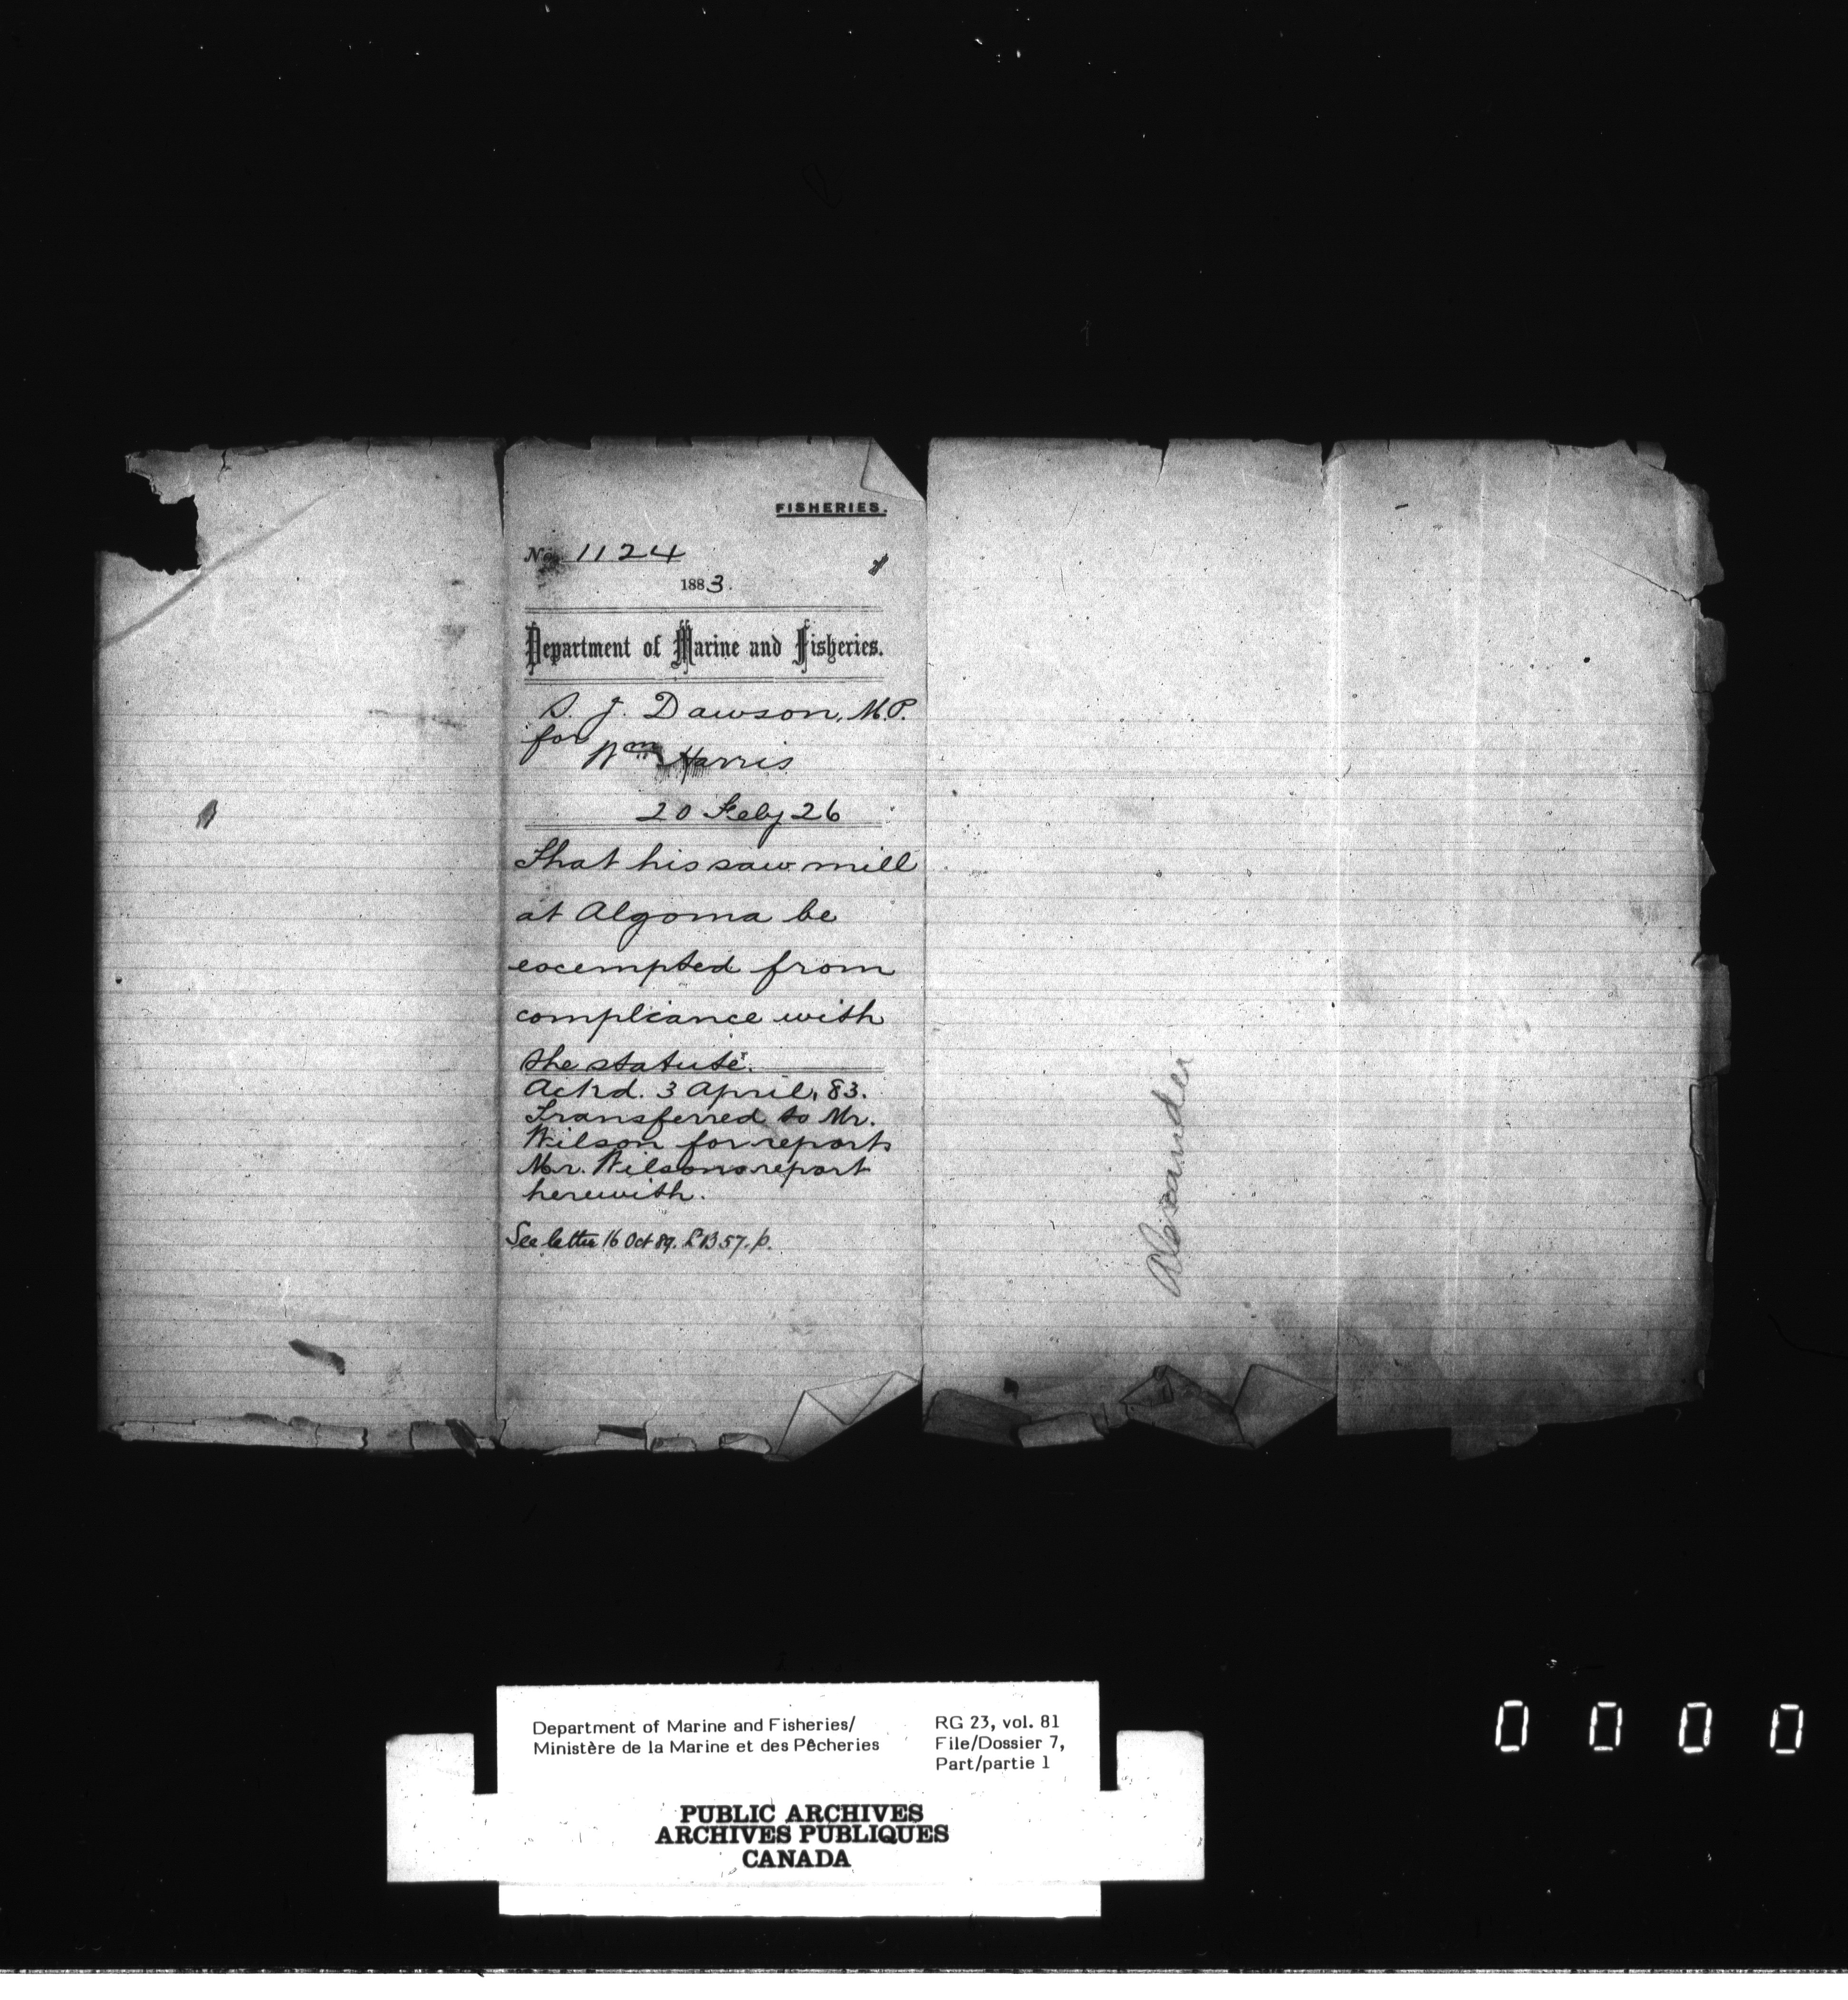 FISHERIES.
No. 1124
1883.
Department of Marine and Fisheries.
S. J. Dawson, M.P.
for
Wm Harris
20 Feby 26
That his saw mill
at Algoma be
exempted from
compliance with
the statute.
Ackd. 3 April, 83.
Transferred to Mr.
Wilson for report
Mr. Wilsons report
herewith.
See letter 16 Oct 89. LB 57. p.
Alexander
Department of Marine and Fisheries/
Ministère de la Marine et des Pêcheries
RG 23, vol. 81
File/Dossier 7,
Part/partie 1
PUBLIC ARCHIVES
ARCHIVES PUBLIQUES
CANADA
0 0 0 0